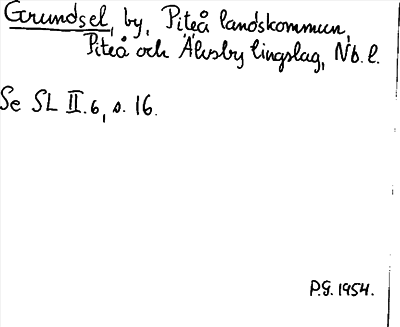 Grundsel, by, Piteå landskommun,
Piteå och Älvsby tingslag, Nb. l.
Se SL II.6, s. 16.
P.G. 1954.